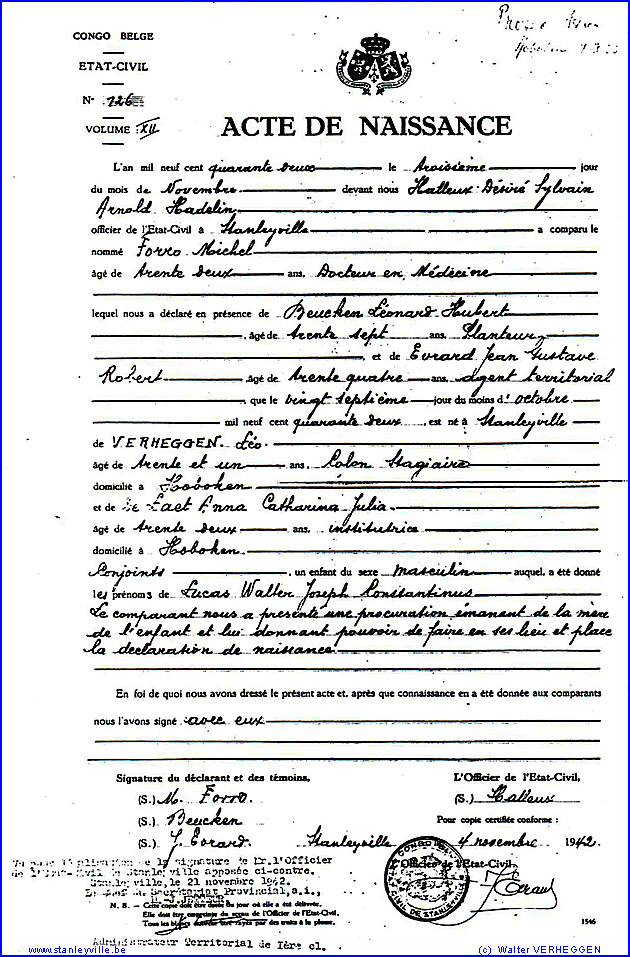 CONGO BELGE
ETAT-CIVIL
N° 226
VOLUME XII
ACTE DE NAISSANCE
L'an mil neuf cent quarante deux le troisième jour
du mois de Novembre devant nous Halleux Désiré Sylvain
Arnold Hadelin
officier de l'Etat-Civil à Stanleyville a comparu le
nommé Forro Michel
âgé de trente deux ans, Docteur en Médecine
lequel nous a déclaré en présence de Beucken Léonard Hubert
, âgé de trente sept ans, Planteur
, et de Evrard Jean Gustave
Robert , âgé de trente quatre ans, agent territorial
, que le vingt septième jour du moins d'octobre
mil neuf cent quarante deux , est né à Stanleyville
de VERHEGGEN Léo
âgé de trente et un ans, Colon Stagiaire
domicilié à Hoboken
et de De Laet Anna Catharina Julia
âgé de trente deux ans, institutrice
domicilié à Hoboken
Conjoints , un enfant du sexe masculin auquel, a été donné
les prénoms de Lucas Walter Joseph Constantinus
Le comparant nous a présenté une procuration émanant de la mère
de l'enfant et lui donnant pouvoir de faire en ses lieu et place
la déclaration de naissance.
En foi de quoi nous avons dressé le présent acte et, après que connaissance en a été donnée aux comparants
nous l'avons signé avec eux
Signature du déclarant et des témoins, L'Officier de l'Etat-Civil,
(S.) M. Forro (S.) Halleux
(S.) Beucken Pour copie certifiée conforme :
(S.) J. Evrard Stanleyville 4 novembre 1942.
la signature de Mr. l'Officier L'Officier de l'Etat-Civil,
de l'Etat-Civil de Stanleyville apposée ci-contre.
Stanleyville, le 21 novembre 1942.
Secrétariat Provincial, a.i.,
N. B. — Cette copie doit être datée du jour où elle a été délivrée.
Elle doit être empreinte du sceau de l'Officier de l'Etat-Civil.
Tous les blancs doivent être rayés par des traits à la plume.
1546
Administrateur Territorial de 1ère cl.
www.stanleyville.be (c) Walter VERHEGGEN